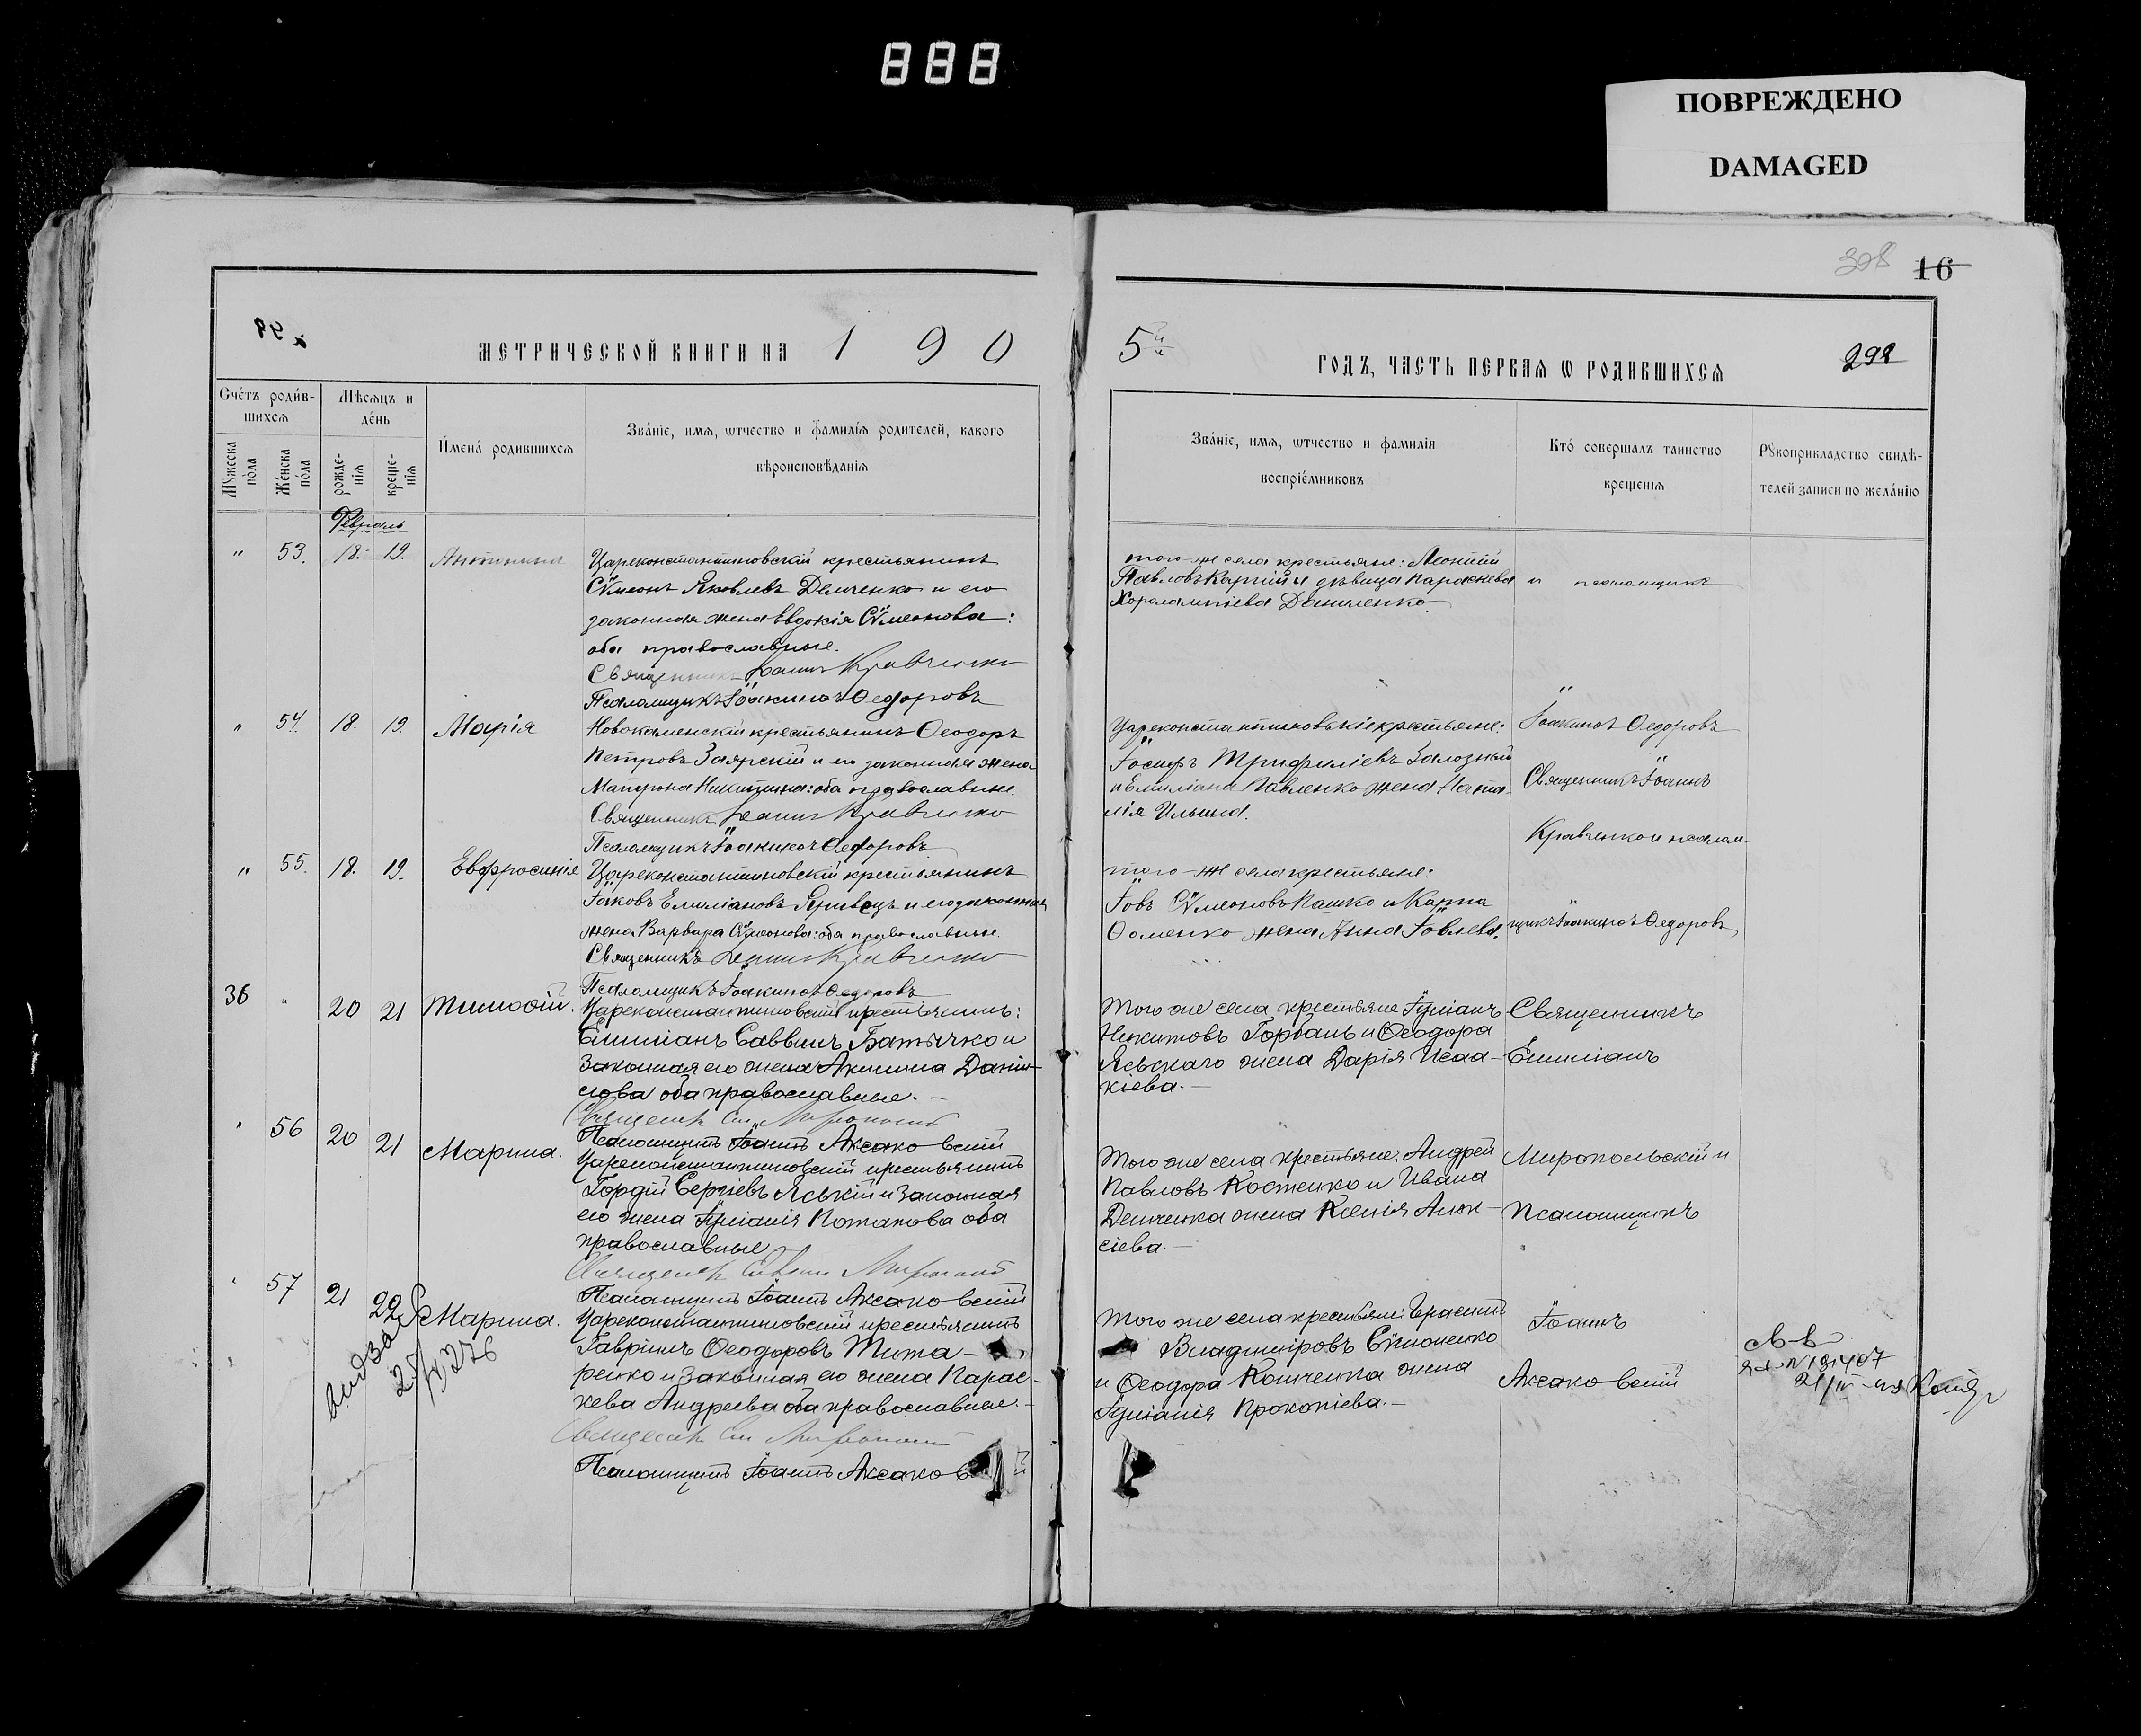 888
ПОВРЕЖДЕНО
DAMAGED
308 16
МЕТРИЧЕСКОЙ КНИГИ НА 190
5й ГОДЪ, ЧАСТЬ ПЕРВАЯ Ѡ РОДИВШИХСЯ
298
Счéтъ роди́в-
шихсѧ
Мꙋжеска пóла
Жéнска пóла
Мѣсѧцъ и
дéнь
рожде-
нія
креще-
нія
И́мена́ родившихсѧ
Звáніе, имѧ, ѿтчество и фамилія родителей, какого
вѣроисповѣданія
Звáніе, имѧ, ѿтчество и фамилія
воспріéмниковъ
Ктó совершалъ таинство
крещенія
Рꙋкоприкладство свидѣ-
телей записи по желáнію
Февраль
" 53. 18. 19. Антонина
Цареконстантиновскій крестьянинъ
Сѵмеонъ Яковлевъ Демченко и его
законная жена Евдокія Сѵмеонова:
оба православные.
Священникъ Іоаннъ Кравченко
Псаломщикъ Іоакимъ Ѳедоровъ
того-же села крестьяне: Леонтій
Павловъ Карпій и дѣвица Параскева
Харалампіева Даниленко.
и псаломщикъ
" 54. 18. 19. Марія
Новокаменскій крестьянинъ Ѳеодоръ
Петровъ Заярскій и его законная жена
Матрона Никитина: оба православные.
Священникъ Іоаннъ Кравченко
Псаломщикъ Іоакимъ Ѳедоровъ
Цареконстантиновскіе крестьяне:
Іосифъ Трифиліевъ Залозній
и Емиліана Павленко жена Ната-
лія Ильина.
Іоакимъ Ѳедоровъ
Священникъ Іоаннъ
Кравченко и псалом-
" 55. 18. 19. Евфросинія
Цареконстантиновскій крестьянинъ
Іаковъ Емиліановъ и его законная
жена Варвара Сѵмеонова: оба православные.
Священникъ Іоаннъ Кравченко
Псаломщикъ Іоакимъ Ѳедоровъ
того-же села крестьяне:
Іовъ Сѵмеоновъ Пашко и Карпа
Ѳоменко жена Анна Іовлева.
щикъ Іоакимъ Ѳедоровъ
36 " 20 21 Тимоѳій.
Цареконстантиновскій крестьянинъ:
Емиліанъ Саввинъ Батечко и
законная его жена Акилина Даніи-
лова оба православные.
Псаломщикъ Іоаннъ Аксаковскій
Того же села крестьяне Іуліанъ
Никитовъ Горбань и Ѳеодора
Яськаго жена Дарія Исаа-
кіева.
Священникъ
Емиліанъ
" 56 20 21 Марина.
Цареконстантиновскій крестьянинъ
Гордій Сергіевъ Яській и законная
его жена Іуліанія Потапова оба
православные
Псаломщикъ Іоаннъ Аксаковскій
Того же села крестьяне: Андрей
Павловъ Костенко и Ивана
Демченка жена Ксенія Алек-
сіева.
Миропольскій и
Псаломщикъ
" 57 21 22 Марина.
Цареконстантиновскій крестьянинъ
Гавріилъ Ѳеодоровъ Тита-
ренко и законная его жена Парас-
кева Андреева оба православные.
Псаломщикъ Іоаннъ Аксаков
Того же села крестьяне: Герасимъ
Владиміровъ Сѵмоненко
и Ѳеодора Комченка жена
Іуліанія Прокопіева.
Іоаннъ
Аксаковскій